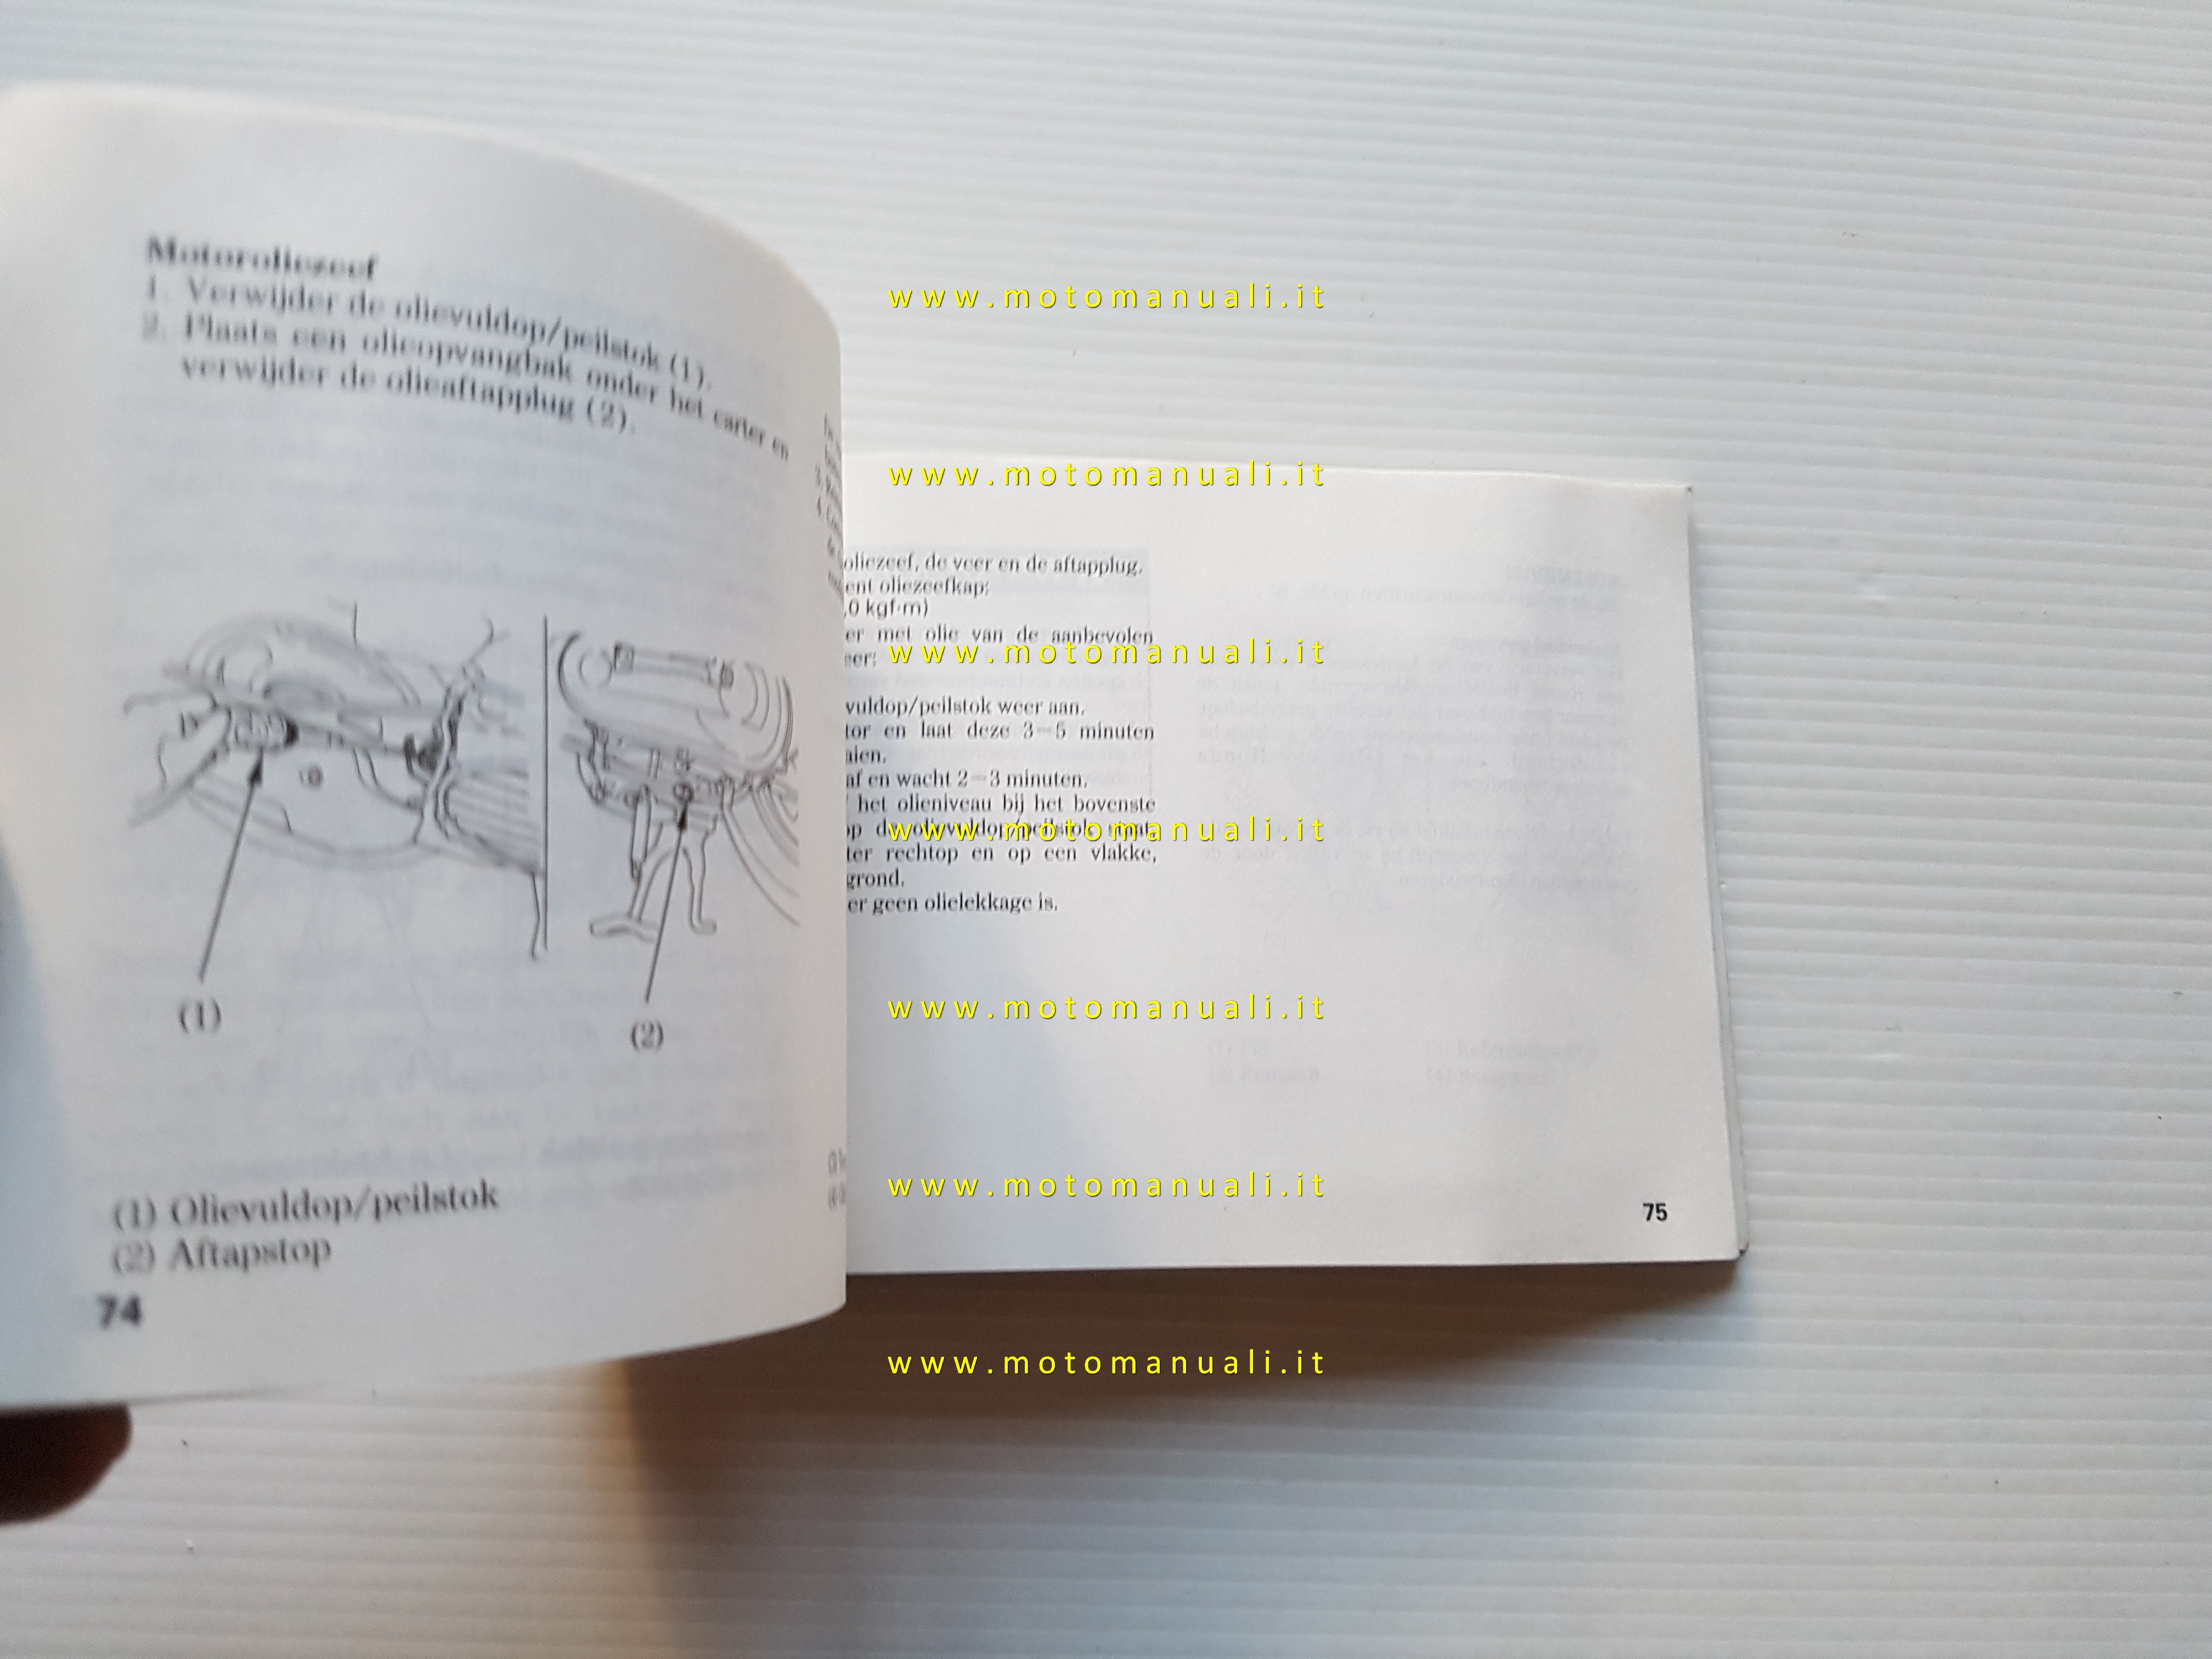 Motoroliezeef
1. Verwijder de olievuldop/peilstok (1).
2. Plaats een olieopvangbak onder het carter en
verwijder de olieaftapplug (2).
(1)
(2)
(1) Olievuldop/peilstok
(2) Aftapstop
74
oliezeef, de veer en de aftapplug.
ent oliezeefkap:
,0 kgf·m)
er met olie van de aanbevolen
eer:
vuldop/peilstok weer aan.
tor en laat deze 3—5 minuten
aien.
af en wacht 2—3 minuten.
het olieniveau bij het bovenste
op de olievuldop/peilstok staat,
ter rechtop en op een vlakke,
grond.
er geen olielekkage is.
75
www.motomanuali.it
www.motomanuali.it
www.motomanuali.it
www.motomanuali.it
www.motomanuali.it
www.motomanuali.it
www.motomanuali.it